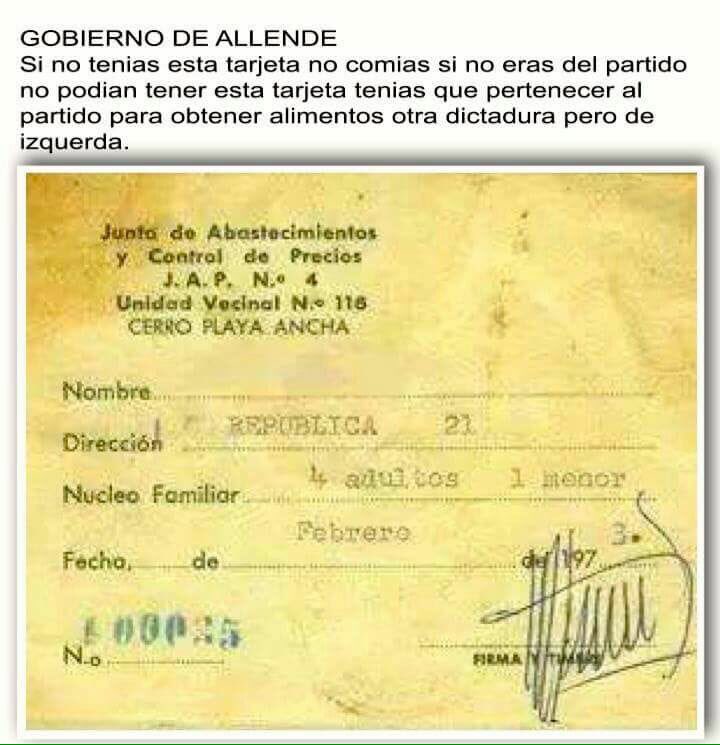 GOBIERNO DE ALLENDE
Si no tenias esta tarjeta no comias si no eras del partido
no podian tener esta tarjeta tenias que pertenecer al
partido para obtener alimentos otra dictadura pero de
izquerda.
Junta de Abastecimientos
y Control de Precios
J. A. P. N.º 4
Unidad Vecinal N.º 116
CERRO PLAYA ANCHA
Nombre
REPUBLICA 21
Dirección
4 adultos 1 menor
Nucleo Familiar
Febrero 3.
Fecha, de de 197
N.o
FIRMA Y TIMBRE